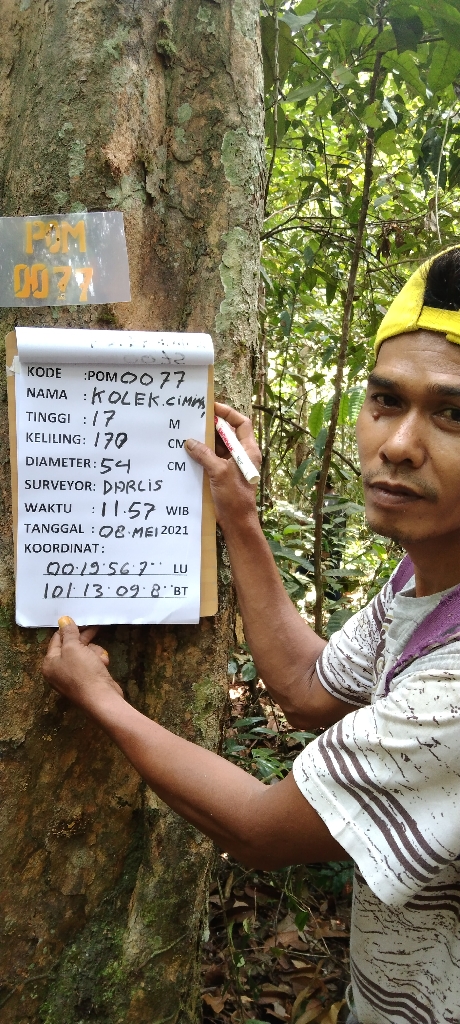 POM
0077
KODE :POM0077
NAMA :KOLEK.CIMMPO
TINGGI :17 M
KELILING: 170 CM
DIAMETER: 54 CM
SURVEYOR: DARLIS
WAKTU : 11.57 WIB
TANGGAL :08.MEI 2021
KOORDINAT:
00.19.56.7'' LU
101.13.09.8''BT